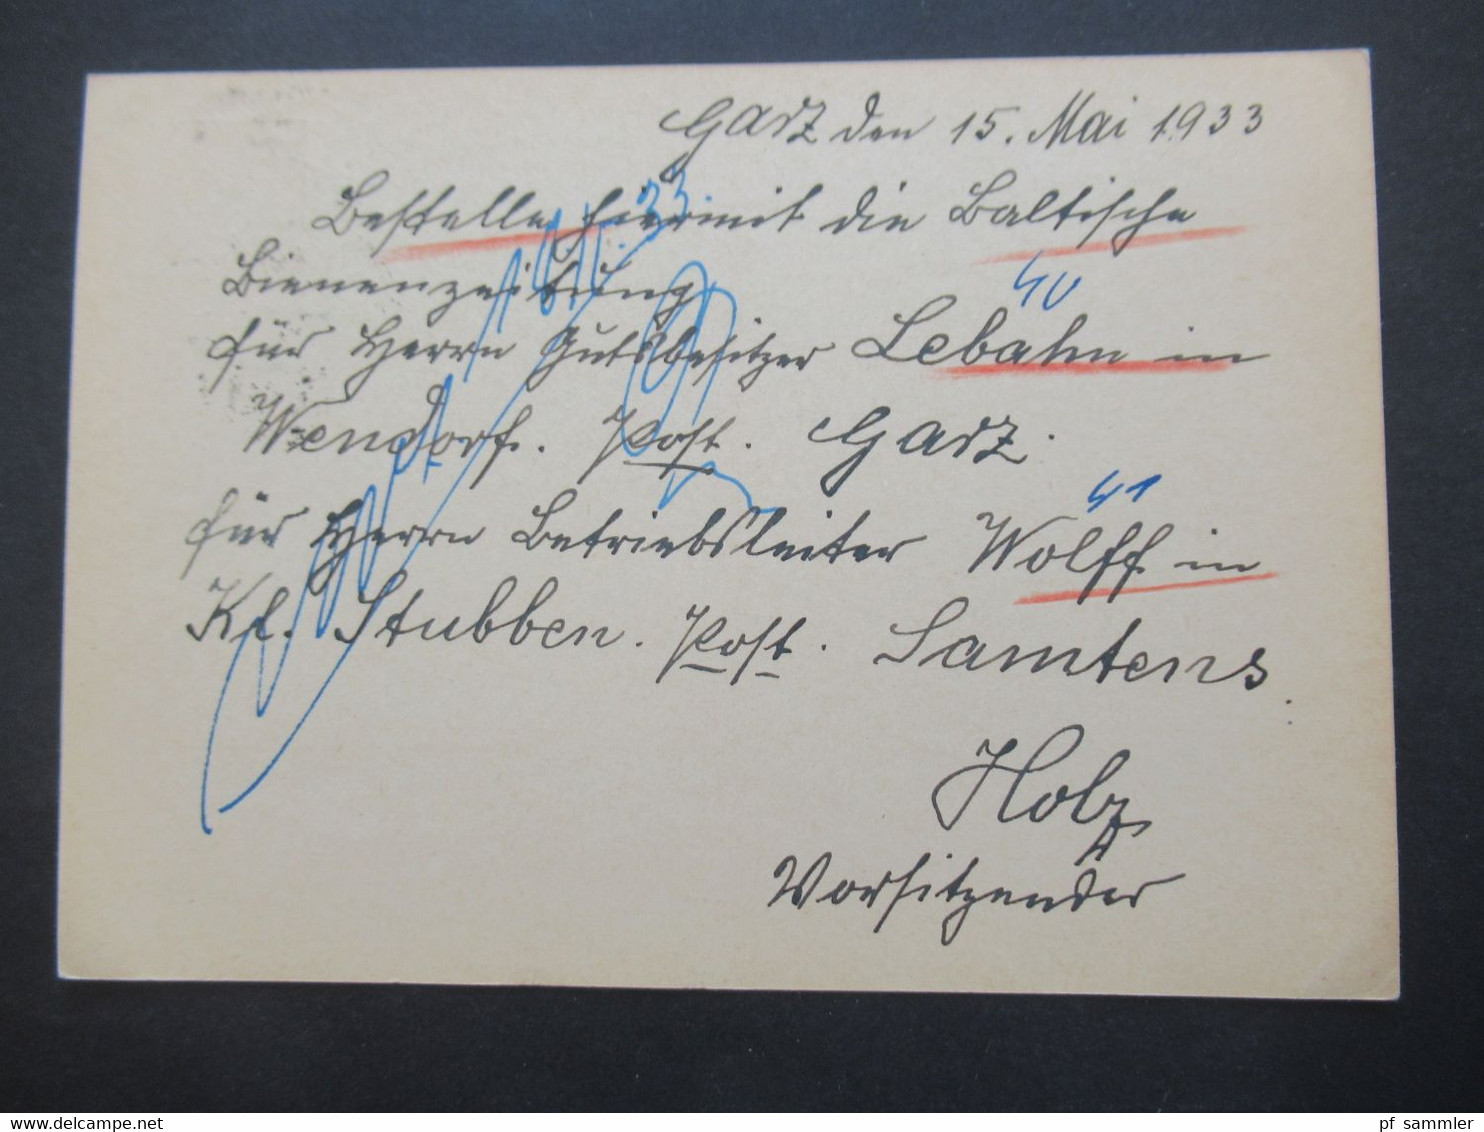 Garz den 15. Mai 1933
Bestelle hiermit die Baltische
Bienenzeitung
40
für Herrn Gutsbesitzer Lebahn in
Wendorf. Post. Garz.
41
für Herrn Betriebsleiter Wolff in
Kl. Stubben. Post. Samtens.
Holz
Vorsitzender
www.delcampe.net
pf_sammler